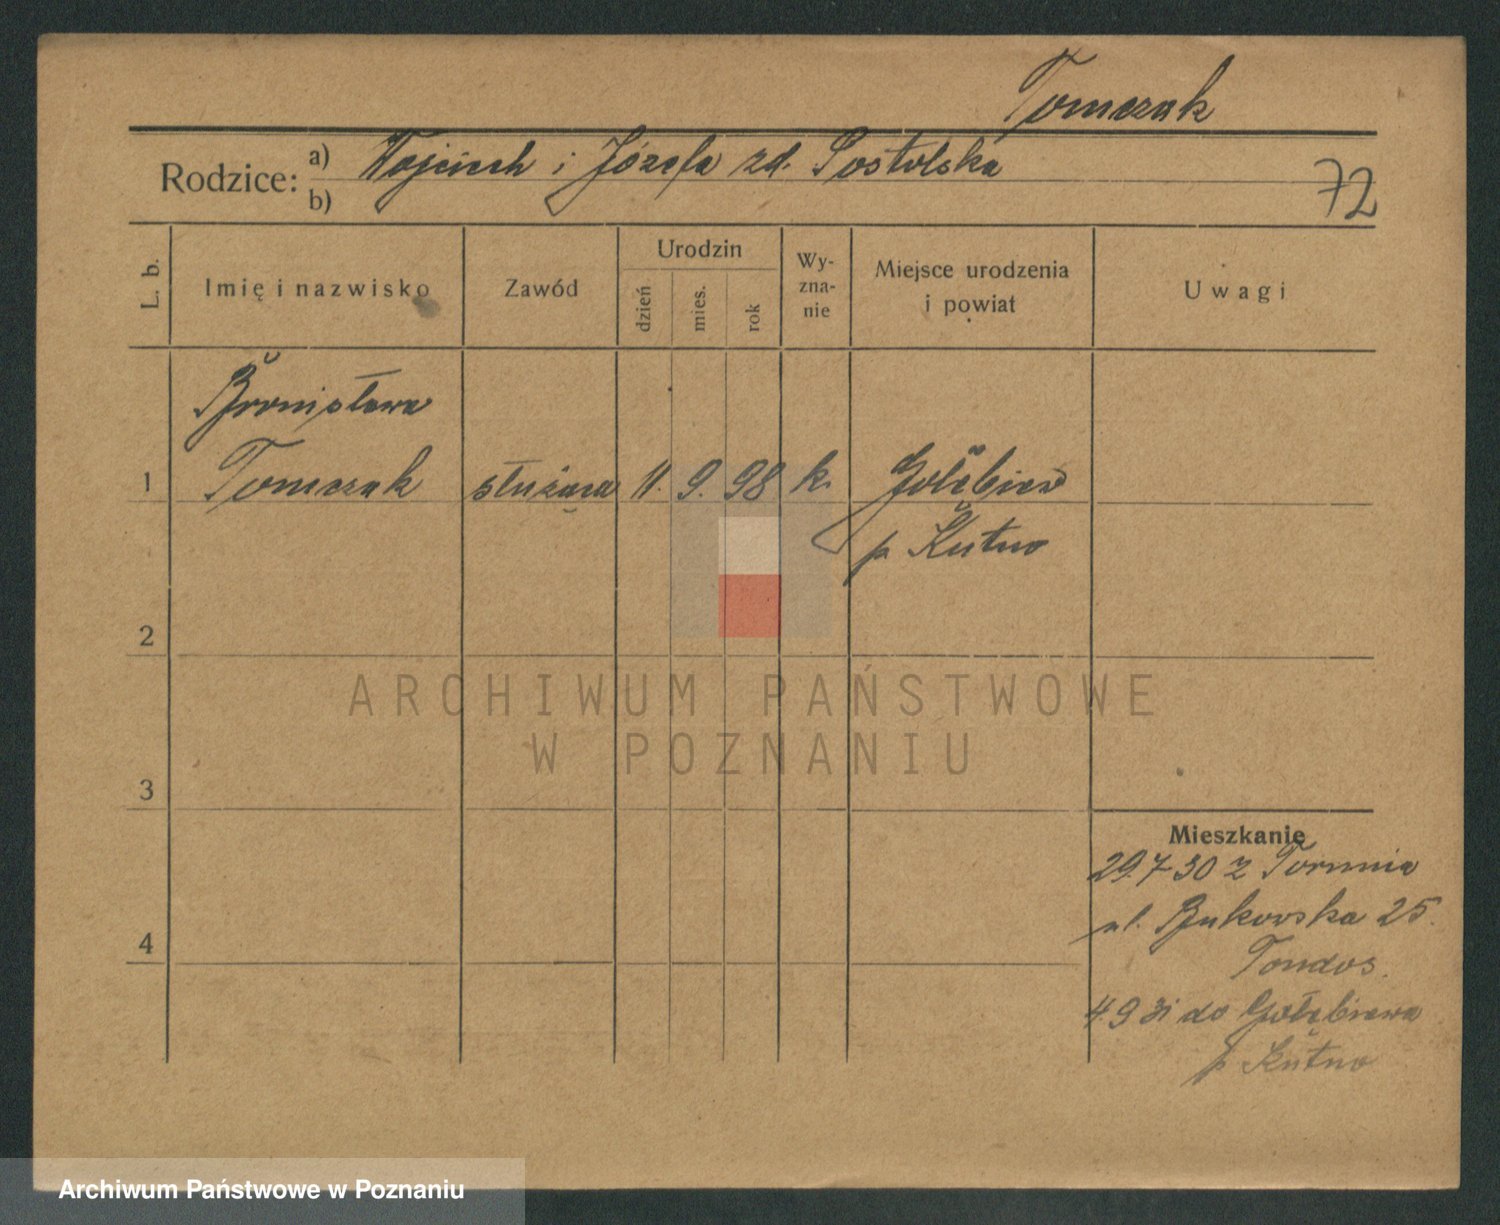 Tomczak
Rodzice: a) Wojciech i Józefa zd. Sostolska
b)
72
L. b.
Imię i nazwisko
Zawód
Urodzin
dzień
mies.
rok
Wy-
zna-
nie
Miejsce urodzenia
i powiat
Uwagi
Bronisława
1 Tomczak służąca 11. 9. 98 k. Gołębiew
p Kutno
2
3
4
ARCHIWUM PAŃSTWOWE
W POZNANIU
Mieszkanie
29.7 30 z Torunia
ul. Bukowska 25.
Tondos.
4.9 31 do Gołębiewa
p Kutno
Archiwum Państwowe w Poznaniu